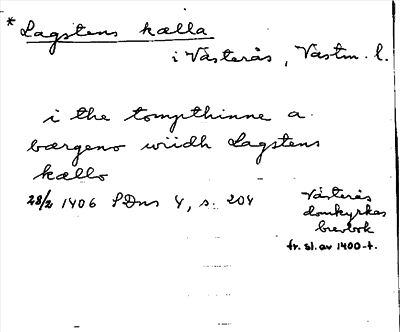 * Lagstens kælla
i Västerås, Vastm. l.
i the tompthinne a
bærgeno wiidh Lagstens
kællo
28/2 1406 SDns 4, s. 204
Västerås
domkyrkas
brevbok
fr. sl. av 1400-t.